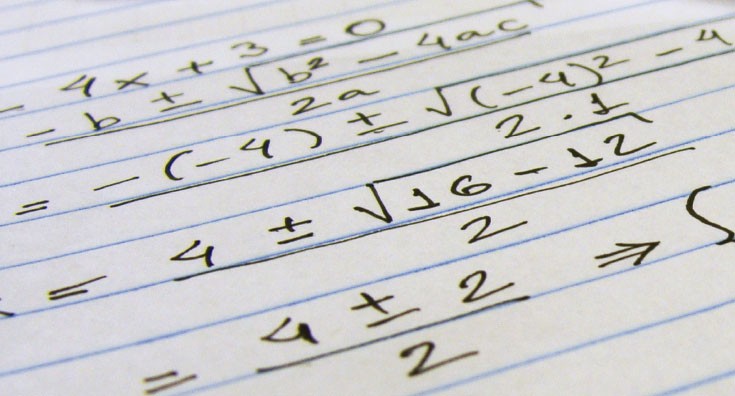 - 4x + 3 = 0
-b ± √b² - 4ac / 2a
= -(-4) ± √(-4)² - 4 / 2 · 1
= 4 ± √16 - 12 / 2
= 4 ± 2 / 2 ⇒